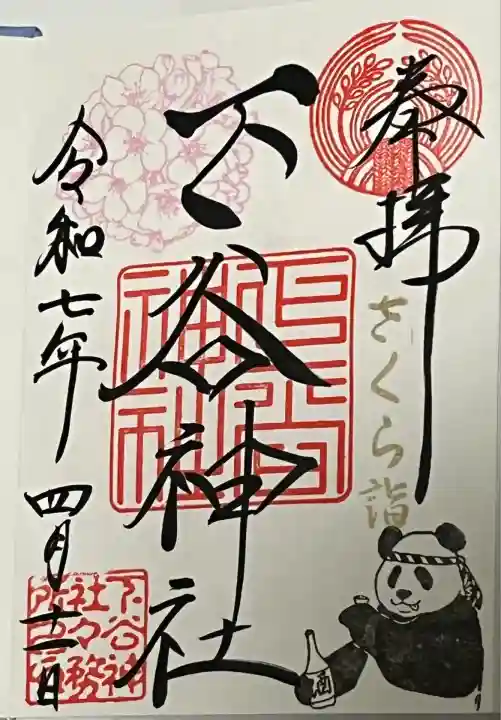 奉拝
さくら詣
下谷神社
令和七年四月十一日
下谷神社
下谷神
社々務
所之印
酒